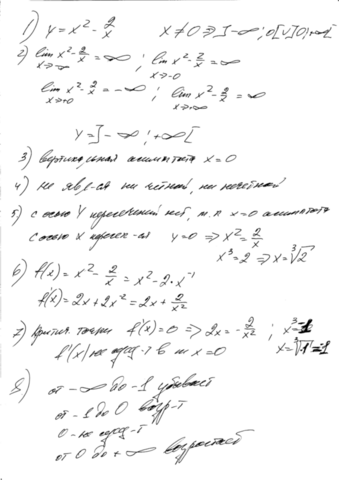 1) y = x² - 2/x   x ≠ 0 ⇒ ]-∞; 0[∪]0; +∞[
2) lim x→-∞ x² - 2/x = ∞ ; lim x→-0 x² - 2/x = ∞
lim x→+0 x² - 2/x = -∞ ; lim x→+∞ x² - 2/x = ∞
Y = ]-∞; +∞[
3) вертикальная асимптота x = 0
4) не явл-ся ни чётной, ни нечётной
5) с осью Y пересечений нет, т.к x = 0 асимптота
с осью X пересек-ся   y = 0 ⇒ x² = 2/x
x³ = 2 ⇒ x = ∛2
6) f(x) = x² - 2/x = x² - 2·x⁻¹
f'(x) = 2x + 2x⁻² = 2x + 2/x²
7) Критич точки f'(x) = 0 ⇒ 2x = -2/x² ; x³ = -1
f'(x) не опред-т в т x = 0   x = ∛-1 = -1
8) от -∞ до -1 убывает
от -1 до 0 возр-т
0 - не опред-т
от 0 до +∞ возрастает